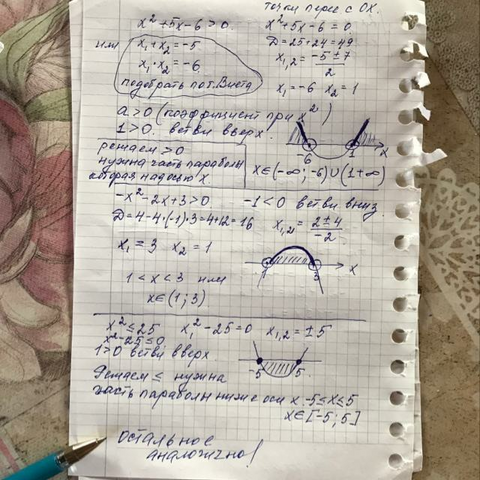 точки перес с ОХ.
x²+5x-6>0
x²+5x-6=0
или
x₁+x₂=-5
x₁·x₂=-6
подобрать по т. Виета
D=25+24=49
x₁,₂=(-5±7)/2
x₁=-6 x₂=1
a>0 (коэффициент при x²)
1>0. ветви вверх.
-6 1 x
решаем >0
нужна часть параболы
которая над осью X
x∈(-∞;-6)∪(1+∞)
-x²-2x+3>0 -1<0 ветви вниз
D=4-4·(-1)·3=4+12=16 x₁,₂=(2±4)/-2
x₁=3 x₂=1
1 3 x
1<x<3 или
x∈(1;3)
x²≤25 x₁²-25=0 x₁,₂=±5
x²-25≤0
1>0 ветви вверх
-5 5
Решаем ≤ нужна
часть параболы ниже оси x -5≤x≤5
x∈[-5;5]
остальное
аналогично!